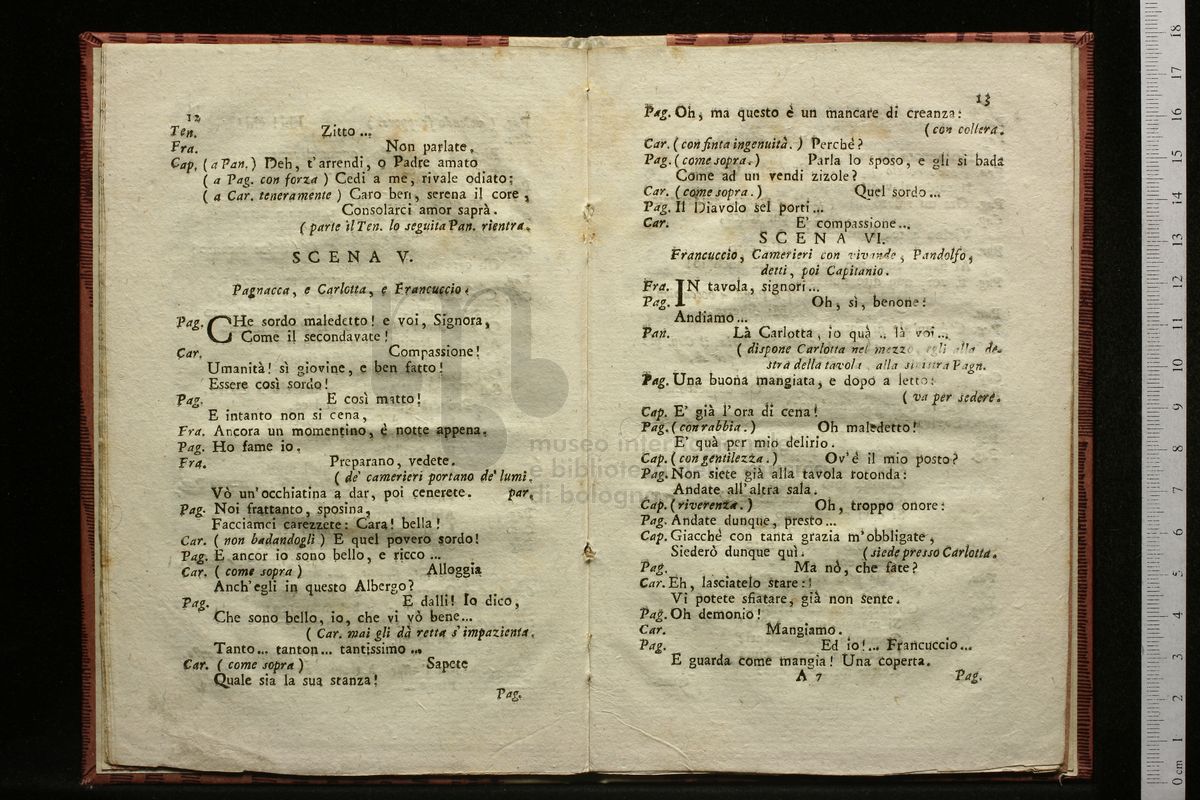 12
Ten. Zitto ...
Fra. Non parlate.
Cap. (a Pan.) Deh, t'arrendi, o Padre amato
(a Pag. con forza) Cedi a me, rivale odiato;
(a Car. teneramente) Caro ben, serena il core,
Consolarci amor saprà.
(parte il Ten. lo seguita Pan. rientra.
SCENA V.
Pagnacca, e Carlotta, e Francuccio.
Pag. CHe sordo maledetto! e voi, Signora,
Come il secondavate!
Car. Compassione!
Umanità! sì giovine, e ben fatto!
Essere così sordo!
Pag. E così matto!
E intanto non si cena,
Fra. Ancora un momentino, è notte appena.
Pag. Ho fame io.
Fra. Preparano, vedete.
(de' camerieri portano de' lumi.
Vò un'occhiatina a dar, poi cenerete. par.
Pag. Noi frattanto, sposina,
Facciamci carezzete: Cara! bella!
Car. (non badandogli) E quel povero sordo!
Pag. E ancor io sono bello, e ricco ...
Car. (come sopra) Alloggia
Anch'egli in questo Albergo?
Pag. E dalli! Io dico,
Che sono bello, io, che vi vò bene...
(Car. mai gli dà retta s'impazienta.
Tanto... tanton... tantissimo ...
Car. (come sopra) Sapete
Quale sia la sua stanza!
Pag.
13
Pag. Oh, ma questo è un mancare di creanza:
(con collera.
Car. (con finta ingenuità.) Perchè?
Pag. (come sopra.) Parla lo sposo, e gli si bada
Come ad un vendi zizole?
Car. (come sopra.) Quel sordo...
Pag. Il Diavolo sel porti...
Car. E' compassione...
SCENA VI.
Francuccio, Camerieri con vivande, Pandolfo,
detti, poi Capitanio.
Fra. IN tavola, signori...
Pag. Oh, sì, benone:
Andiamo...
Pan. Là Carlotta, io quà .. là voi...
(dispone Carlotta nel mezzo, egli alla de-
stra della tavola, alla sinistra Pagn.
Pag. Una buona mangiata, e dopo a letto:
(va per sedere.
Cap. E' già l'ora di cena!
Pag. (con rabbia.) Oh maledetto!
E' quà per mio delirio.
Cap. (con gentilezza.) Ov'è il mio posto?
Pag. Non siete già alla tavola rotonda:
Andate all'altra sala.
Cap. (riverenza.) Oh, troppo onore:
Pag. Andate dunque, presto...
Cap. Giacchè con tanta grazia m'obbligate,
Siederò dunque quì. (siede presso Carlotta.
Pag. Ma nò, che fate?
Car. Eh, lasciatelo stare:!
Vi potete sfiatare, già non sente.
Pag. Oh demonio!
Car. Mangiamo.
Pag. Ed io!... Francuccio...
E guarda come mangia! Una coperta.
A 7 Pag.
museo inter
e bibliote
di bologna
0 cm 1 2 3 4 5 6 7 8 9 10 11 12 13 14 15 16 17 18